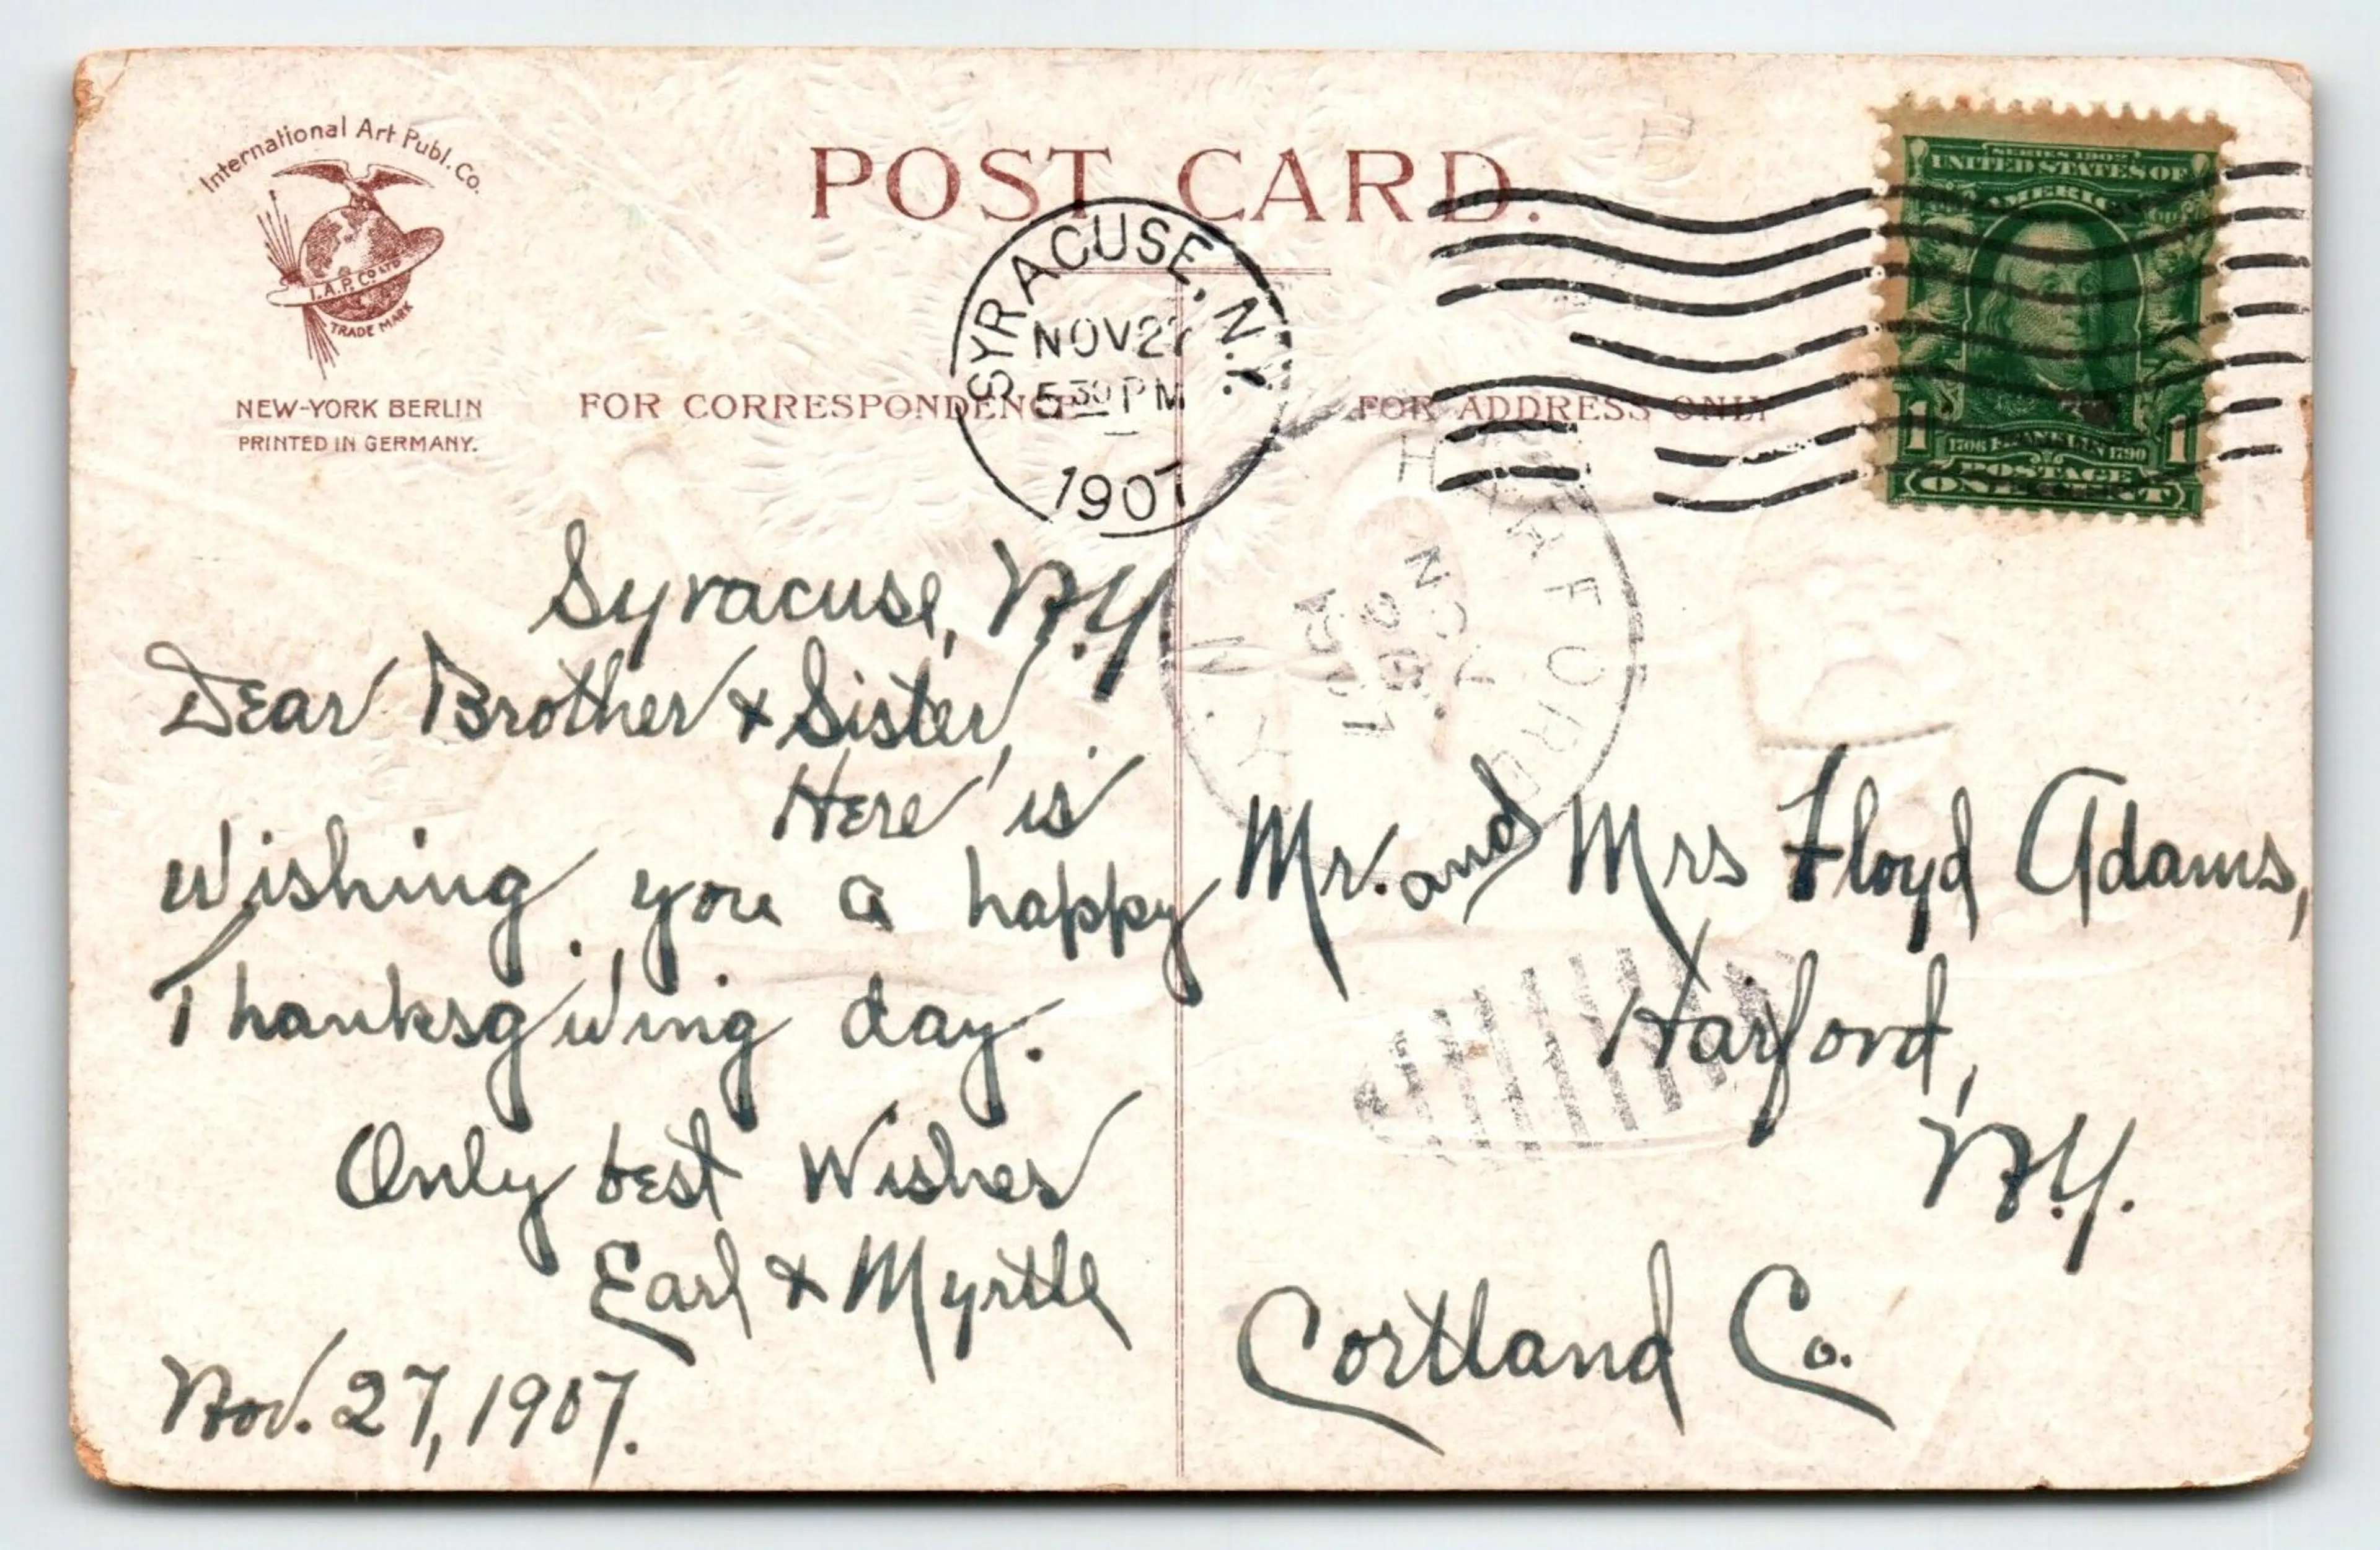 International Art Publ. Co.
I.A.P. Co LTD
TRADE MARK
NEW-YORK BERLIN
PRINTED IN GERMANY.
POST CARD.
FOR CORRESPONDENCE
FOR ADDRESS ONLY
SYRACUSE, N.Y.
NOV 27
5 30 PM
1907
SERIES 1902
UNITED STATES OF
AMERICA
1 1
1706 FRANKLIN 1790
POSTAGE
ONE CENT
HARFORD
N.Y.
NOV
Syracuse, N.Y
Dear Brother & Sister,
Here is
Wishing you a happy
Thanksgiving day.
Only best Wishes
Earl & Myrtle
Nov. 27, 1907.
Mr. and Mrs Floyd Adams,
Harford,
N.Y.
Cortland Co.